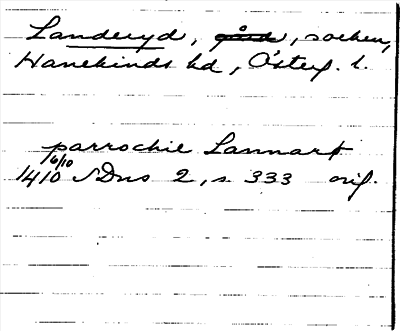 Landeryd, gård, socken,
Hanekinds hd, Österg. l.
parrochie Lannart
16/10
1410 SDns 2, s 333 orig.